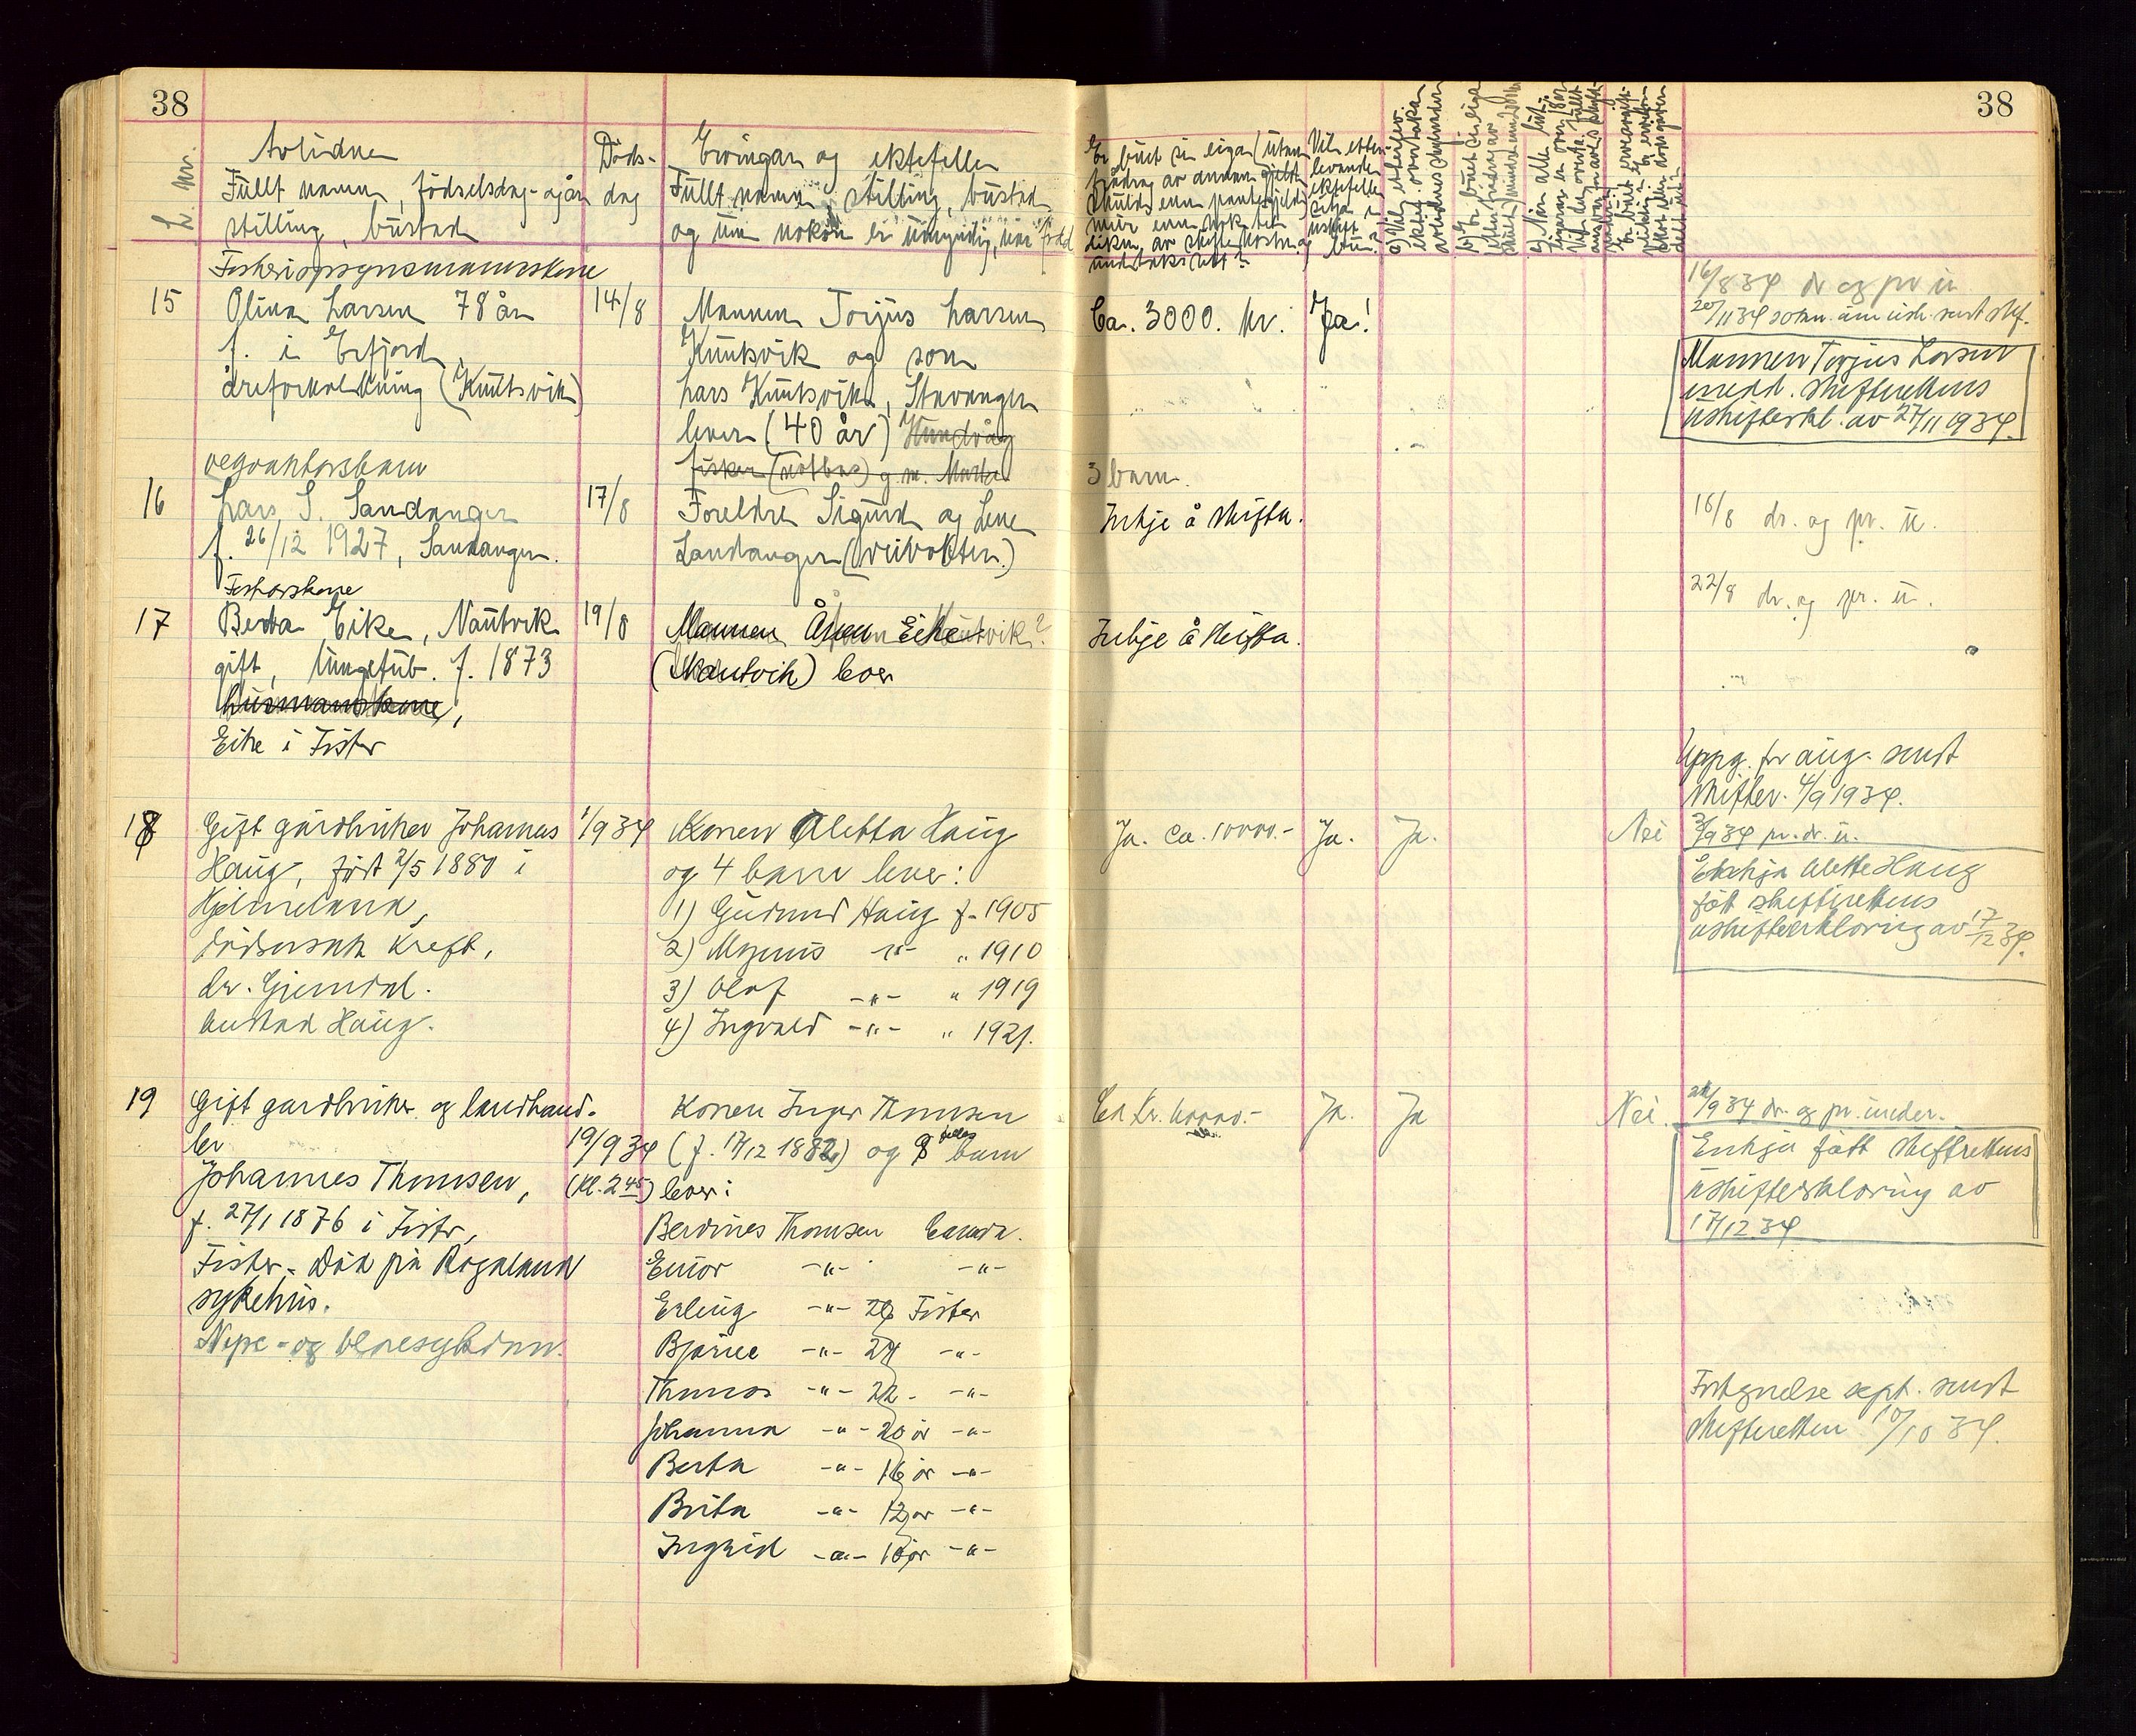 38
38
L. Nr.
Avlidne
Fullt namn, födselsdag- og år
stilling, bustad
Döds-
dag
Ervingar og ektefelle
Fullt namn, stilling, bustad
og um nokon er umyndig, når född
Er buet si eiga (utan
frådrag av annan gjeld
skuld enn pantegjeld)
meir enn nok til
Vil etter-
levande
ektefelle
sitja i
uskift
bu?
Fiskeriopsynsmannskone
15
Olina Larsen 78 år
f. i Erfjord,
åreforkalkning (Knutsvik)
14/8
Mannen Torjus Larsen
Knutsvik og son
Lars Knutsvik, Stavanger
lever (40 år) Hundvåg
fisker (notbas) g. m. Marta
Ca. 3000. kr.
Ja!
16/8 34 dr og pr u
20/11 34 sokn. um ush. sendt skf.
Mannen Torjus Larsen
medd. skifterettens
uskifteerkl. av 27/11 1934.
vegvaktarsbarn
16
Lars S. Sandanger
f. 26/12 1927, Sandanger.
17/8
Foreldre Sigurd og Lene
Sandanger (veivokter.)
3 barn.
Inkje å skifta.
18/8 dr. og pr. u.
Fiskarskone
17
Berta Eike, Nautvik
gift, lungetub. f. 1873
husmannskone,
Eike i Fister
19/8
Mannen Åsen Eike
(Nautvik) lever
Inkje å skifta.
22/8 dr. og pr. u.
Uppg. for aug. sendt
skifter. 4/9 1934.
18
Gift gardbruker Johannes
Haug, født 2/5 1880 i
Hjelmeland,
dødsorsak kreft,
dr. Gjendal.
bustad Haug.
1/9 34
Konen Aletta Haug
og 4 barn lever:
1) Gudmund Haug f. 1905
2) Magnus -"- " 1910
3) Olaf -"- " 1919
4) Ingvald -"- " 1921.
Ja. ca. 10000.-
Ja.
Ja.
Nei
3/9 34 pr. dr. u.
Enkja Alette Haug
fått skifterettens
uskifteerklæring av 17/12 34.
19
Gift gardbruker og landhand-
ler
Johannes Thomsen,
f. 27/1 1876 i Fister,
Fister. Död på Rogaland
sykehus.
Nyre- og blæresykdom.
19/9 34
(Kl. 2 45)
Konen Inger Thomsen
(f. 17/12 1882) og 9 felles barn
lever:
Berdines Thomsen Canada.
Einar -"- -"-
Erling -"- 26 Fister
Bjarne -"- 24 -"-
Thomas -"- 22 - -"-
Johanna -"- 20 år -"-
Berta -"- 16 år -"-
Brita -"- 12 år -"-
Ingrid -"- 10 år -"-
Ca kr.
Ja.
Ja
Nei.
24/9 34 dr. og pr. under.
Enkja fått skifterettens
uskifteerklæring av
17/12 34
Fortegnelse sept. sendt
skifteretten 10/10 34.